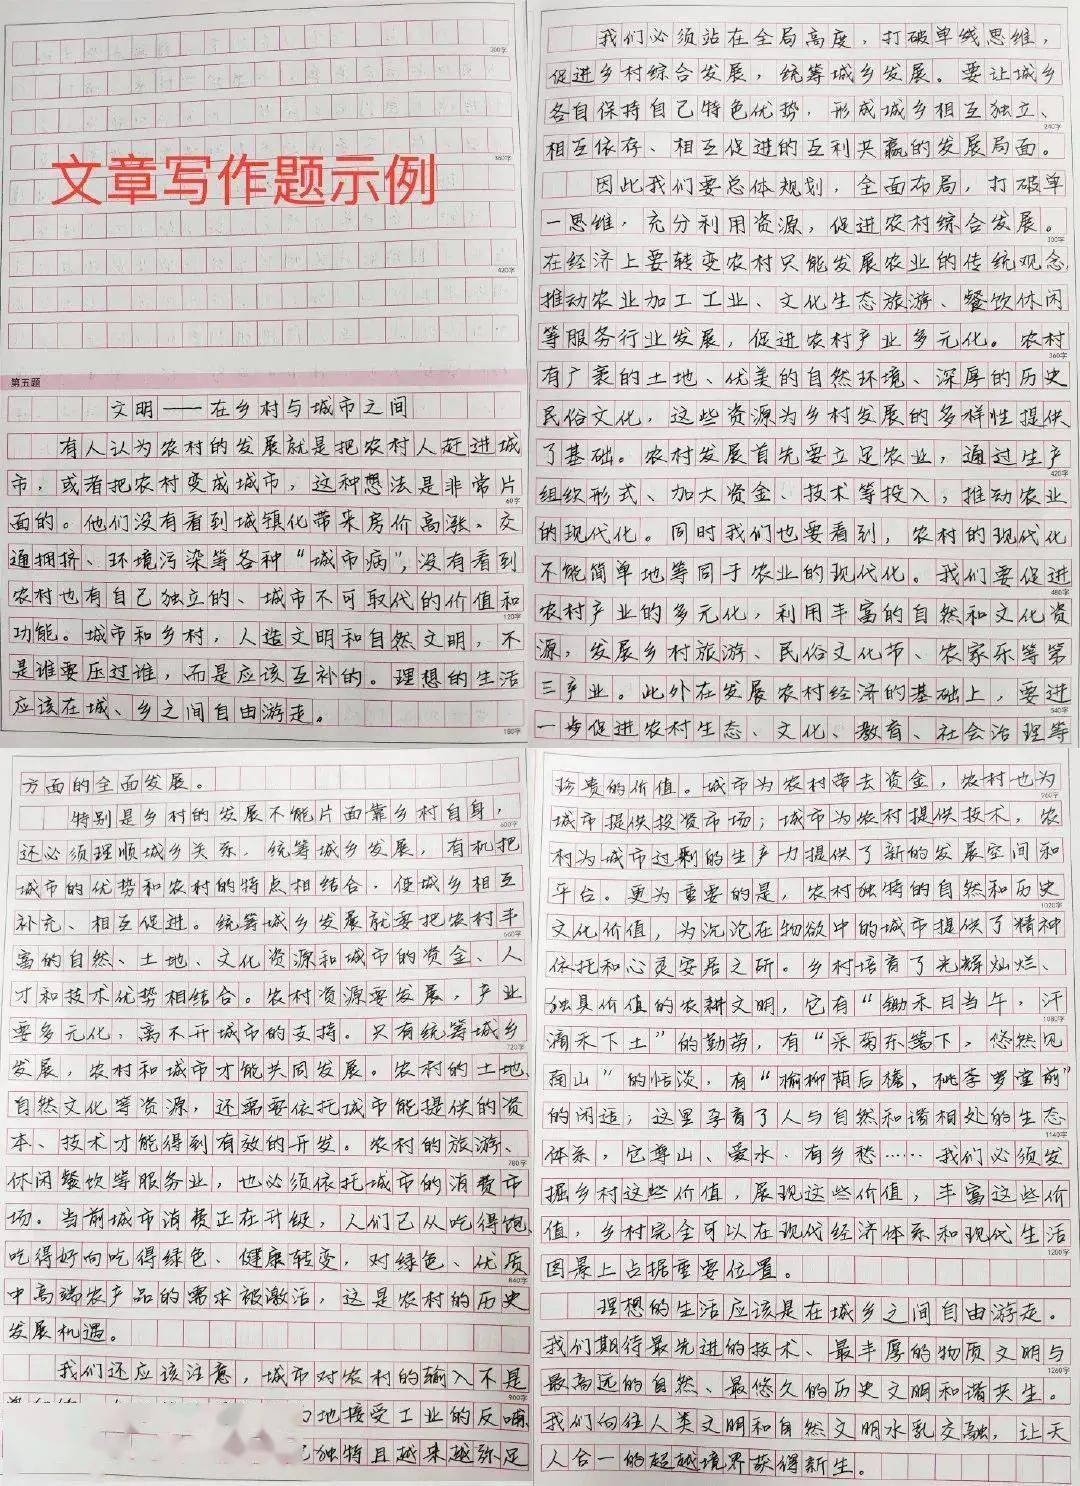 300字
360字
文章写作题示例
420字
第五题
文明——在乡村与城市之间
有人认为农村的发展就是把农村人赶进城
市,或者把农村变成城市,这种想法是非常片
60字
面的。他们没有看到城镇化带来房价高涨、交
通拥挤、环境污染等各种“城市病”,没有看到
农村也有自己独立的、城市不可取代的价值和
120字
功能。城市和乡村,人造文明和自然文明,不
是谁要压过谁,而是应该互补的。理想的生活
应该在城、乡之间自由游走。
180字
我们必须站在全局高度,打破单线思维,
促进乡村综合发展,统筹城乡发展。要让城乡
各自保持自己特色优势,形成城乡相互独立、
240字
相互依存、相互促进的互利共赢的发展局面。
因此我们要总体规划,全面布局,打破单
一思维,充分利用资源,促进农村综合发展。
300字
在经济上要转变农村只能发展农业的传统观念
推动农业加工工业、文化生态旅游、餐饮休闲
等服务行业发展,促进农村产业多元化。农村
360字
有广袤的土地、优美的自然环境、深厚的历史
民俗文化,这些资源为乡村发展的多样性提供
了基础。农村发展首先要立足农业,通过生产
420字
组织形式、加大资金、技术等投入,推动农业
的现代化。同时我们也要看到,农村的现代化
不能简单地等同于农业的现代化。我们要促进
480字
农村产业的多元化,利用丰富的自然和文化资
源,发展乡村旅游、民俗文化节、农家乐等第
三产业。此外在发展农村经济的基础上,要进
540字
一步促进农村生态、文化、教育、社会治理等
方面的全面发展。
特别是乡村的发展不能片面靠乡村自身,
600字
还必须理顺城乡关系,统筹城乡发展,有机把
城市的优势和农村的特点相结合,使城乡相互
补充、相互促进。统筹城乡发展就要把农村丰
660字
富的自然、土地、文化资源和城市的资金、人
才和技术优势相结合。农村资源要发展,产业
要多元化,离不开城市的支持。只有统筹城乡
720字
发展,农村和城市才能共同发展。农村的土地、
自然文化等资源,还需要依托城市能提供的资
本、技术才能得到有效的开发。农村的旅游、
780字
休闲餐饮等服务业,也必须依托城市的消费市
场。当前城市消费正在升级,人们已从吃得饱、
吃得好向吃得绿色、健康转变,对绿色、优质
840字
中高端农产品的需求被激活,这是农村的历史
发展机遇。
我们还应该注意,城市对农村的输入不是
900字
地接受工业的反哺
独特且越来越弥足
珍贵的价值。城市为农村带去资金,农村也为
960字
城市提供投资市场;城市为农村提供技术,农
村为城市过剩的生产力提供了新的发展空间和
平台。更为重要的是,农村独特的自然和历史
1020字
文化价值,为沉沦在物欲中的城市提供了精神
依托和心灵安居之所。乡村培育了光辉灿烂、
独具价值的农耕文明,它有“锄禾日当午,汗
1080字
滴禾下土”的勤劳,有“采菊东篱下,悠然见
南山”的恬淡,有“榆柳荫后檐,桃李罗堂前”
的闲适;这里孕育了人与自然和谐相处的生态
1140字
体系,它尊山、爱水、有乡愁……我们必须发
掘乡村这些价值,展现这些价值,丰富这些价
值,乡村完全可以在现代经济体系和现代生活
1200字
图景上占据重要位置。
理想的生活应该是在城乡之间自由游走。
我们期待最先进的技术、最丰厚的物质文明与
1260字
最高远的自然、最悠久的历史文明和谐共生。
我们向往人类文明和自然文明水乳交融,让天
人合一的超越境界获得新生。